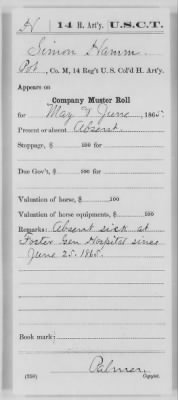 H | 14 H. Art'y. | U.S.C.T.
Simon Hamm
Pvt, Co. M, 14 Reg't U. S. Col'd H. Art'y.
Appears on
Company Muster Roll
for May & June, 1865.
Present or absent Absent.
Stoppage, $ 100 for
Due Gov't, $ 100 for
Valuation of horse, $ 100
Valuation of horse equipments, $ 100
Remarks: Absent sick at
Foster Gen Hospital since
June 25. 1865.
Book mark:
Palmer
(358) Copyist.